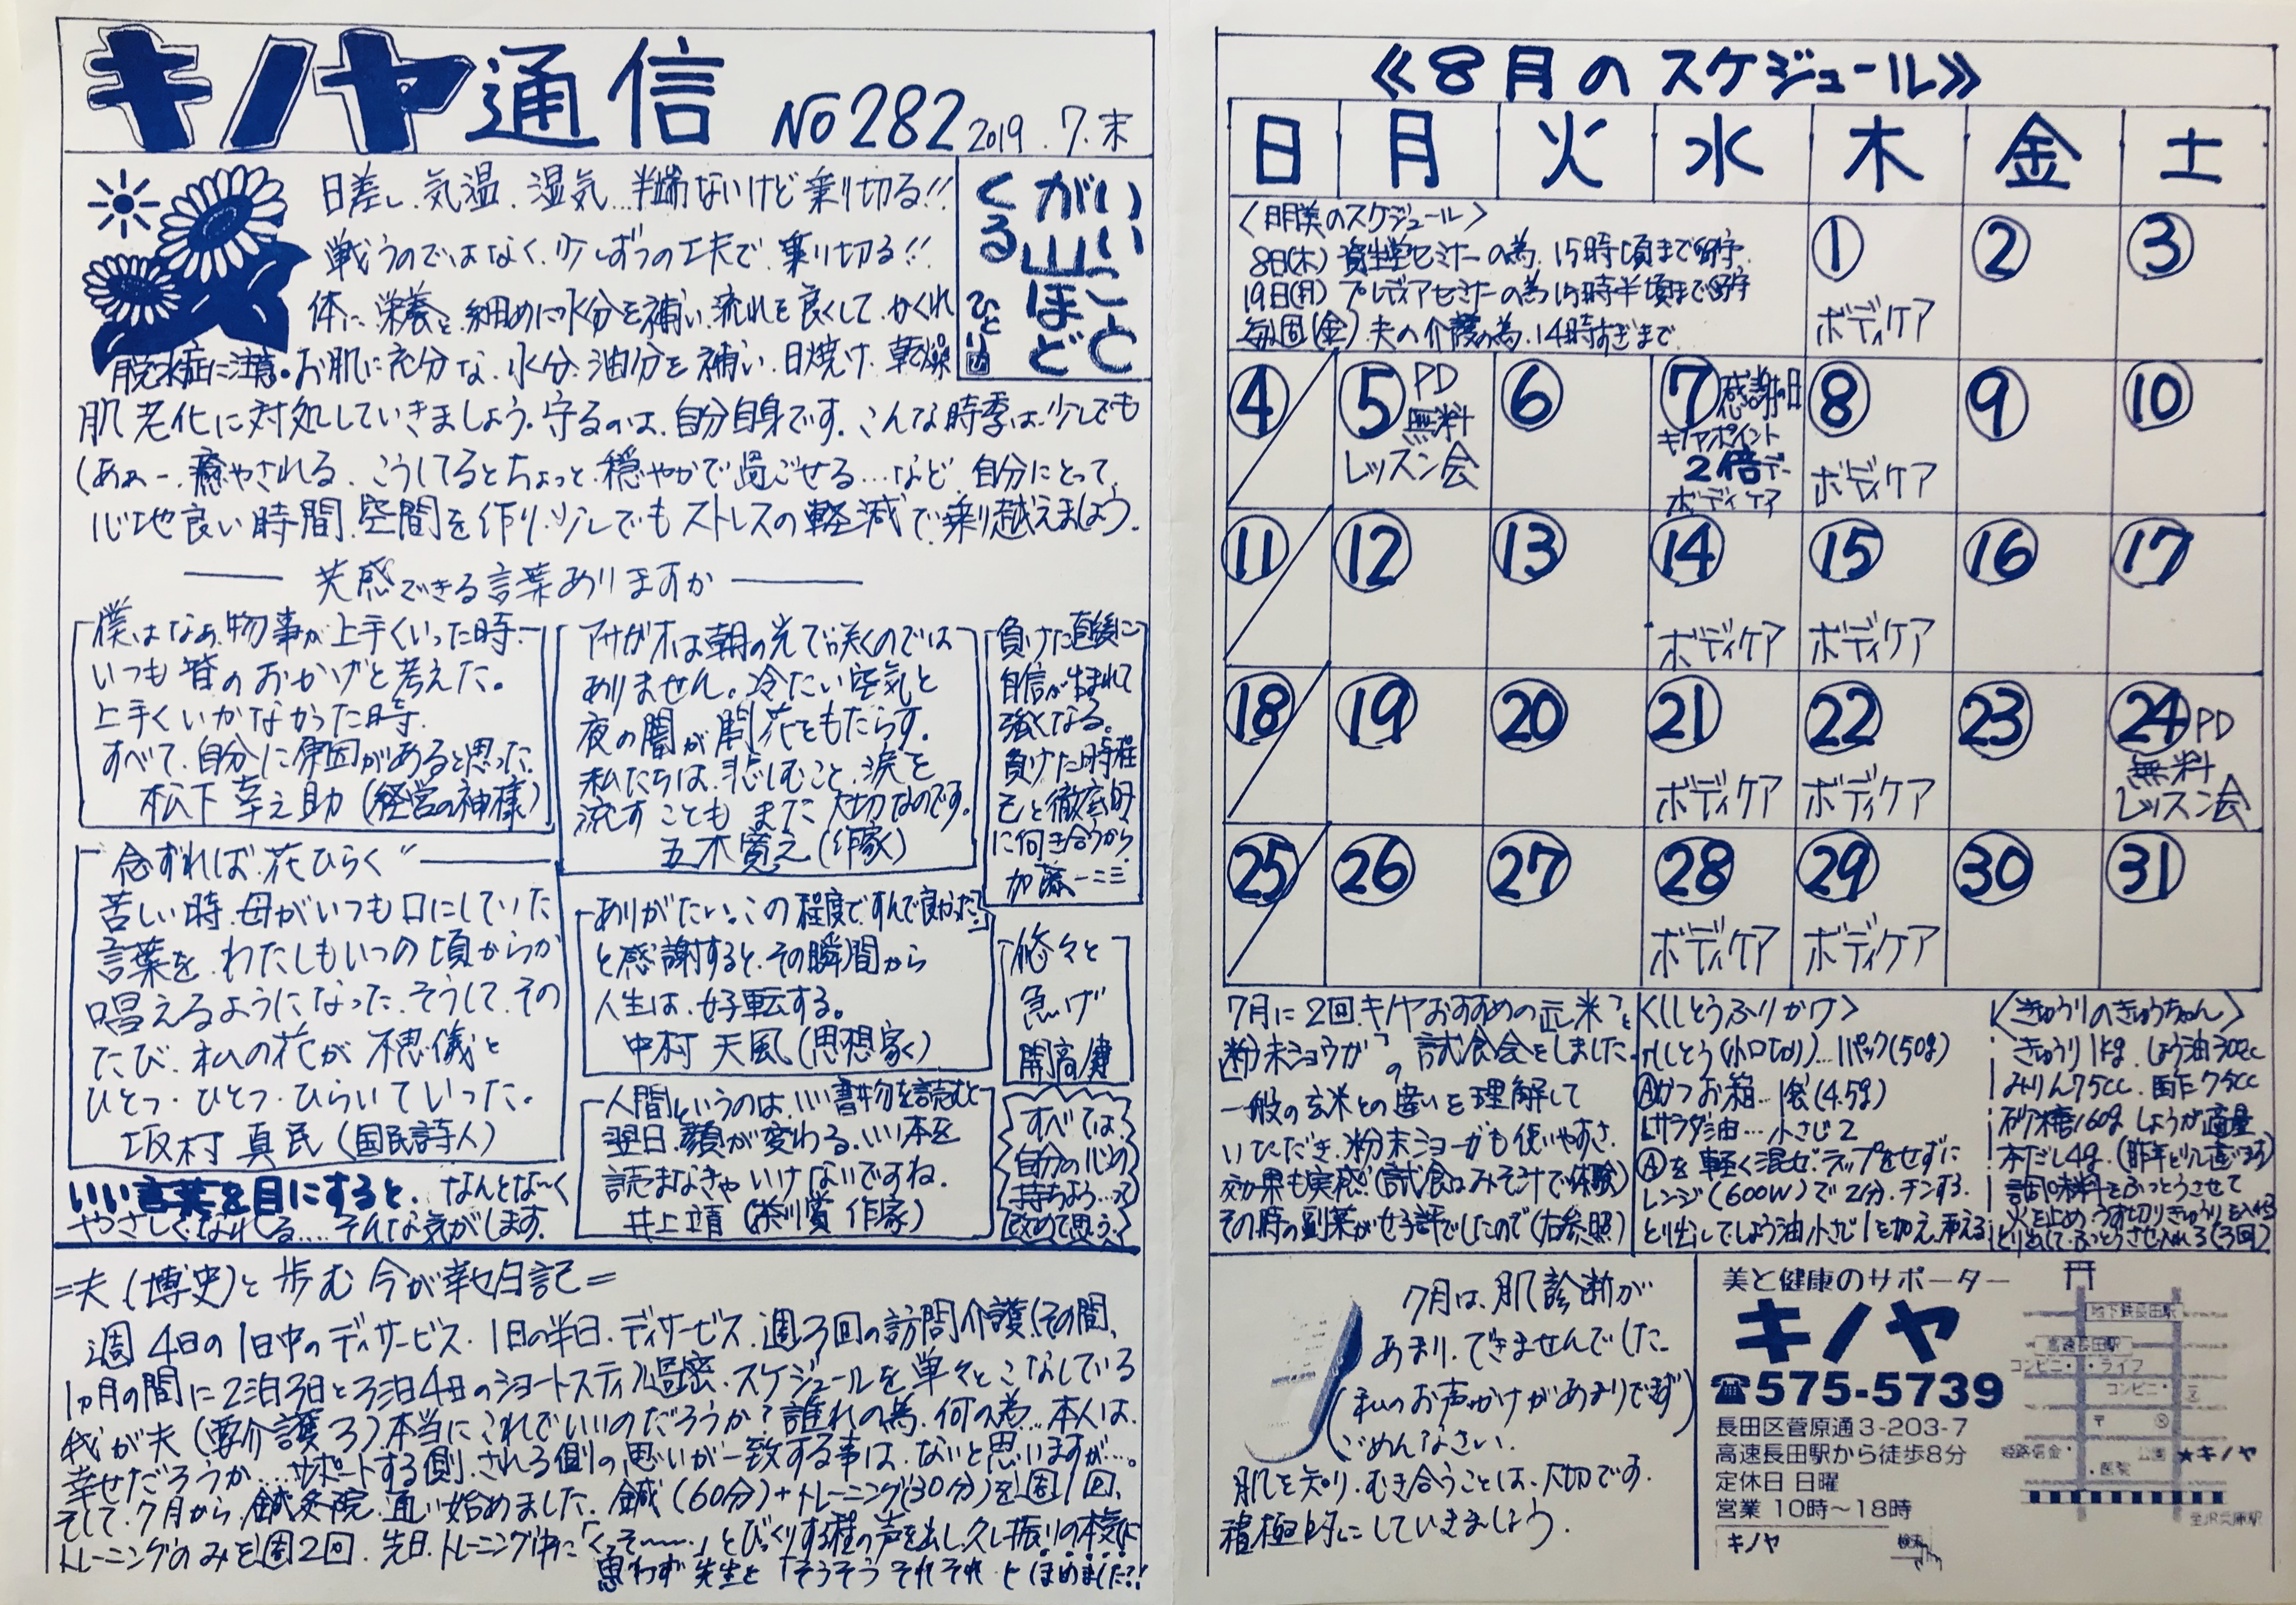 キノヤ通信 No282 2019.7.末
いいこと
がい山ほど
くる ひとり言
日差し、気温、湿気…半端ないけど乗り切る!!
戦うのではなく、少しずつの工夫で、乗り切る!!
体に栄養を、細めに水分を補い、流れを良くして、かくれ
脱水症に注意。お肌に充分な、水分、油分を補い、日焼け、乾燥
肌老化に対処していきましょう。守るのは、自分自身です。こんな時季は、少しでも
(あぁー、癒やされる、こうしてるとちょっと、穏やかで過ごせる…など、自分にとって、
心地良い時間、空間を作り、少しでもストレスの軽減で、乗り越えましょう。
共感できる言葉ありますか
僕はなぁ、物事が上手くいった時、
いつも皆のおかげと考えた。
上手くいかなかった時、
すべて、自分に原因があると思った。
松下幸之助(経営の神様)
アサガオは朝の光で咲くのでは
ありません。冷たい空気と
夜の闇が開花をもたらす。
私たちは、悲しむこと、涙を
流すことも また 大切なのです。
五木寛之(作家)
負けた直後に
自信が生まれて
強くなる。
負けた時程
己と徹底的
に向き合うから
加藤一二三
"念ずれば花ひらく"
苦しい時、母がいつも口にしていた
言葉を、わたしもいつの頃からか
唱えるようになった、そうして、その
たび、私の花が不思儀と
ひとつ・ひとつ・ひらいていった。
坂村真民(国民詩人)
ありがたい。この程度ですんで良かった
と感謝すると、その瞬間から
人生は、好転する。
中村天風(思想家)
悠々と
急げ
開高健
人間というのは、いい書物を読むと
翌日、顔が変わる、いい本を
読まなきゃいけないですね。
井上靖(芥川賞 作家)
すべては、
自分の心の
持ちよう…って
改めて思う。
いい言葉を目にすると、なんとな〜く
やさしくなれる…‥そんな気がします。
=夫(博史)と歩む 今が幸せ日記=
週4日の1日中のディサービス、1日の半日、ディサービス、週3回の訪問介護(その間、
1ヵ月の間に2泊3日と3泊4日のショートスティ)過密、スケジュールを単々とこなしている
我が夫(要介護3)本当にこれでいいのだろうか?誰れの為、何の為…本人は、
幸せだろうか…サポートする側、される側の思いが一致する事は、ないと思いますが…。
そして、7月から鍼灸院、通い始めました。鍼(60分)+トレーニング(30分)を週1回、
トレーニングのみを週2回、先日、トレーニング中に「くっそ〜〜」とびっくりする程の声を出し、久し振りの本気に
思わず先生と「そうそうそれそれとほめました?!
《8月のスケジュール》
日 月 火 水 木 金 土
〈明美のスケジュール〉
8日(木) 資生堂セミナーの為、15時頃まで留守
19日(月) プレディアセミナーの為15時半頃まで留守
毎週(金)夫の介護の為、14時すぎまで
① ② ③
ボディケア
④ ⑤PD ⑥ ⑦感謝の日 ⑧ ⑨ ⑩
無料
レッスン会
キノヤポイント
2倍デー
ボディケア ボディケア
⑪ ⑫ ⑬ ⑭ ⑮ ⑯ ⑰
ボディケア ボディケア
⑱ ⑲ ⑳ ㉑ ㉒ ㉓ ㉔PD
無料
レッスン会
ボディケア ボディケア
㉕ ㉖ ㉗ ㉘ ㉙ ㉚ ㉛
ボディケア ボディケア
7月に2回、キノヤおすすめの玄米と
粉末ショウガの試食会をしました
一般の玄米との違いを理解して
いただき、粉末ショーガも使いやすさ、
効果も実感(試食はみそ汁で体験)
その時の副菜が好評でしたので(右参照)
〈ししとうふりかけ〉
ししとう(小口切り)…1パック(50g)
Ⓐかつお節…1袋(4.5g)
サラダ油…小さじ2
Ⓐを軽く混ぜ、ラップをせずに
レンジ(600W)で2分、チンする、
とり出してしょう油小さじ1を加え、和える
〈きゅうりのきゅうちゃん〉
きゅうり1kg、しょう油30cc
みりん75cc、酢75cc
砂糖160g しょうが適量
本だし4g、(昨年と少し違います)
調味料をふっとうさせて
火を止め、うす切りきゅうりを入れる
とり出して、ふっとうさせ入れる(3回)
7月は、肌診断が
あまり、できませんでした
(私のお声かけがあまりできず)
ごめんなさい。
肌を知り、むき合うことは、大切です。
積極的にしていきましょう。
美と健康のサポーター
キノヤ
☎575-5739
長田区菅原通3-203-7
高速長田駅から徒歩8分
定休日 日曜
営業 10時〜18時
キノヤ 検索
地下鉄長田駅
高速長田駅
コンビニ・ ・ライフ
コンビニ・
〒
姫路信金・ 公園 ★キノヤ
・医院
至JR兵庫駅